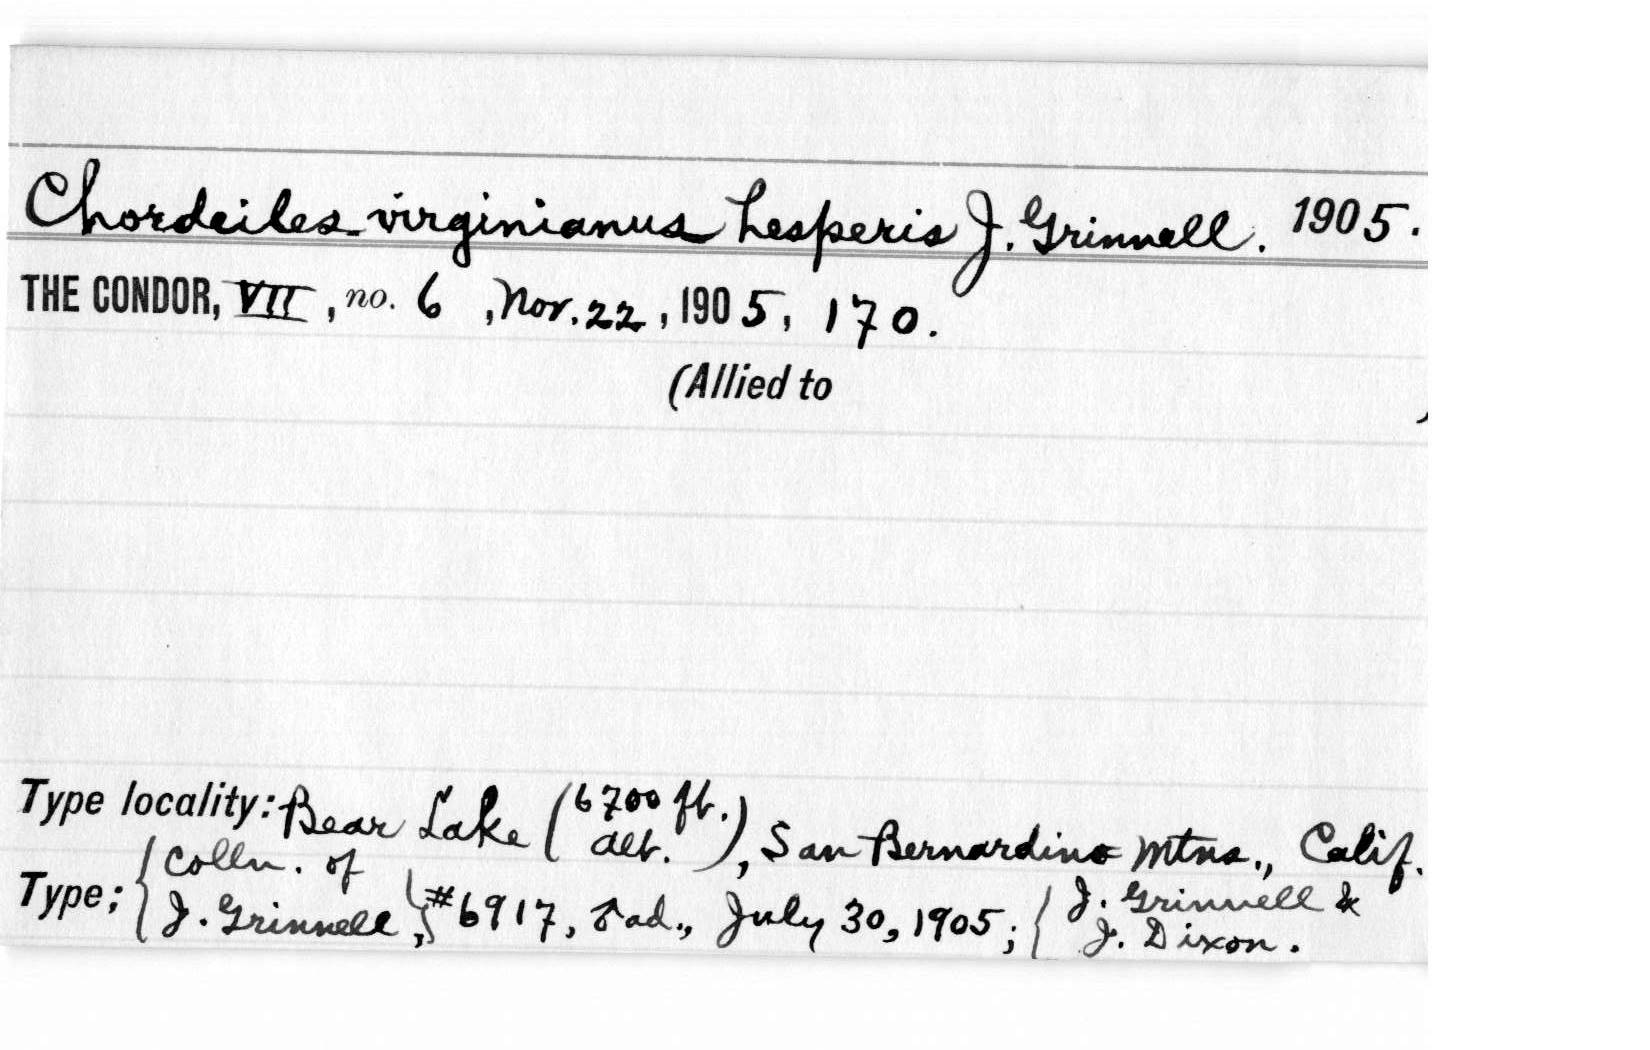 Chordeiles virginianus hesperis J. Grinnell. 1905.
THE CONDOR, VII, no. 6, Nov. 22, 1905, 170.
(Allied to )
Type locality: Bear Lake (6700 ft. alt.), San Bernardino Mtns., Calif.
Type; {Colln. of J. Grinnell,} #6917, ♂ ad., July 30, 1905; {J. Grinnell & J. Dixon.